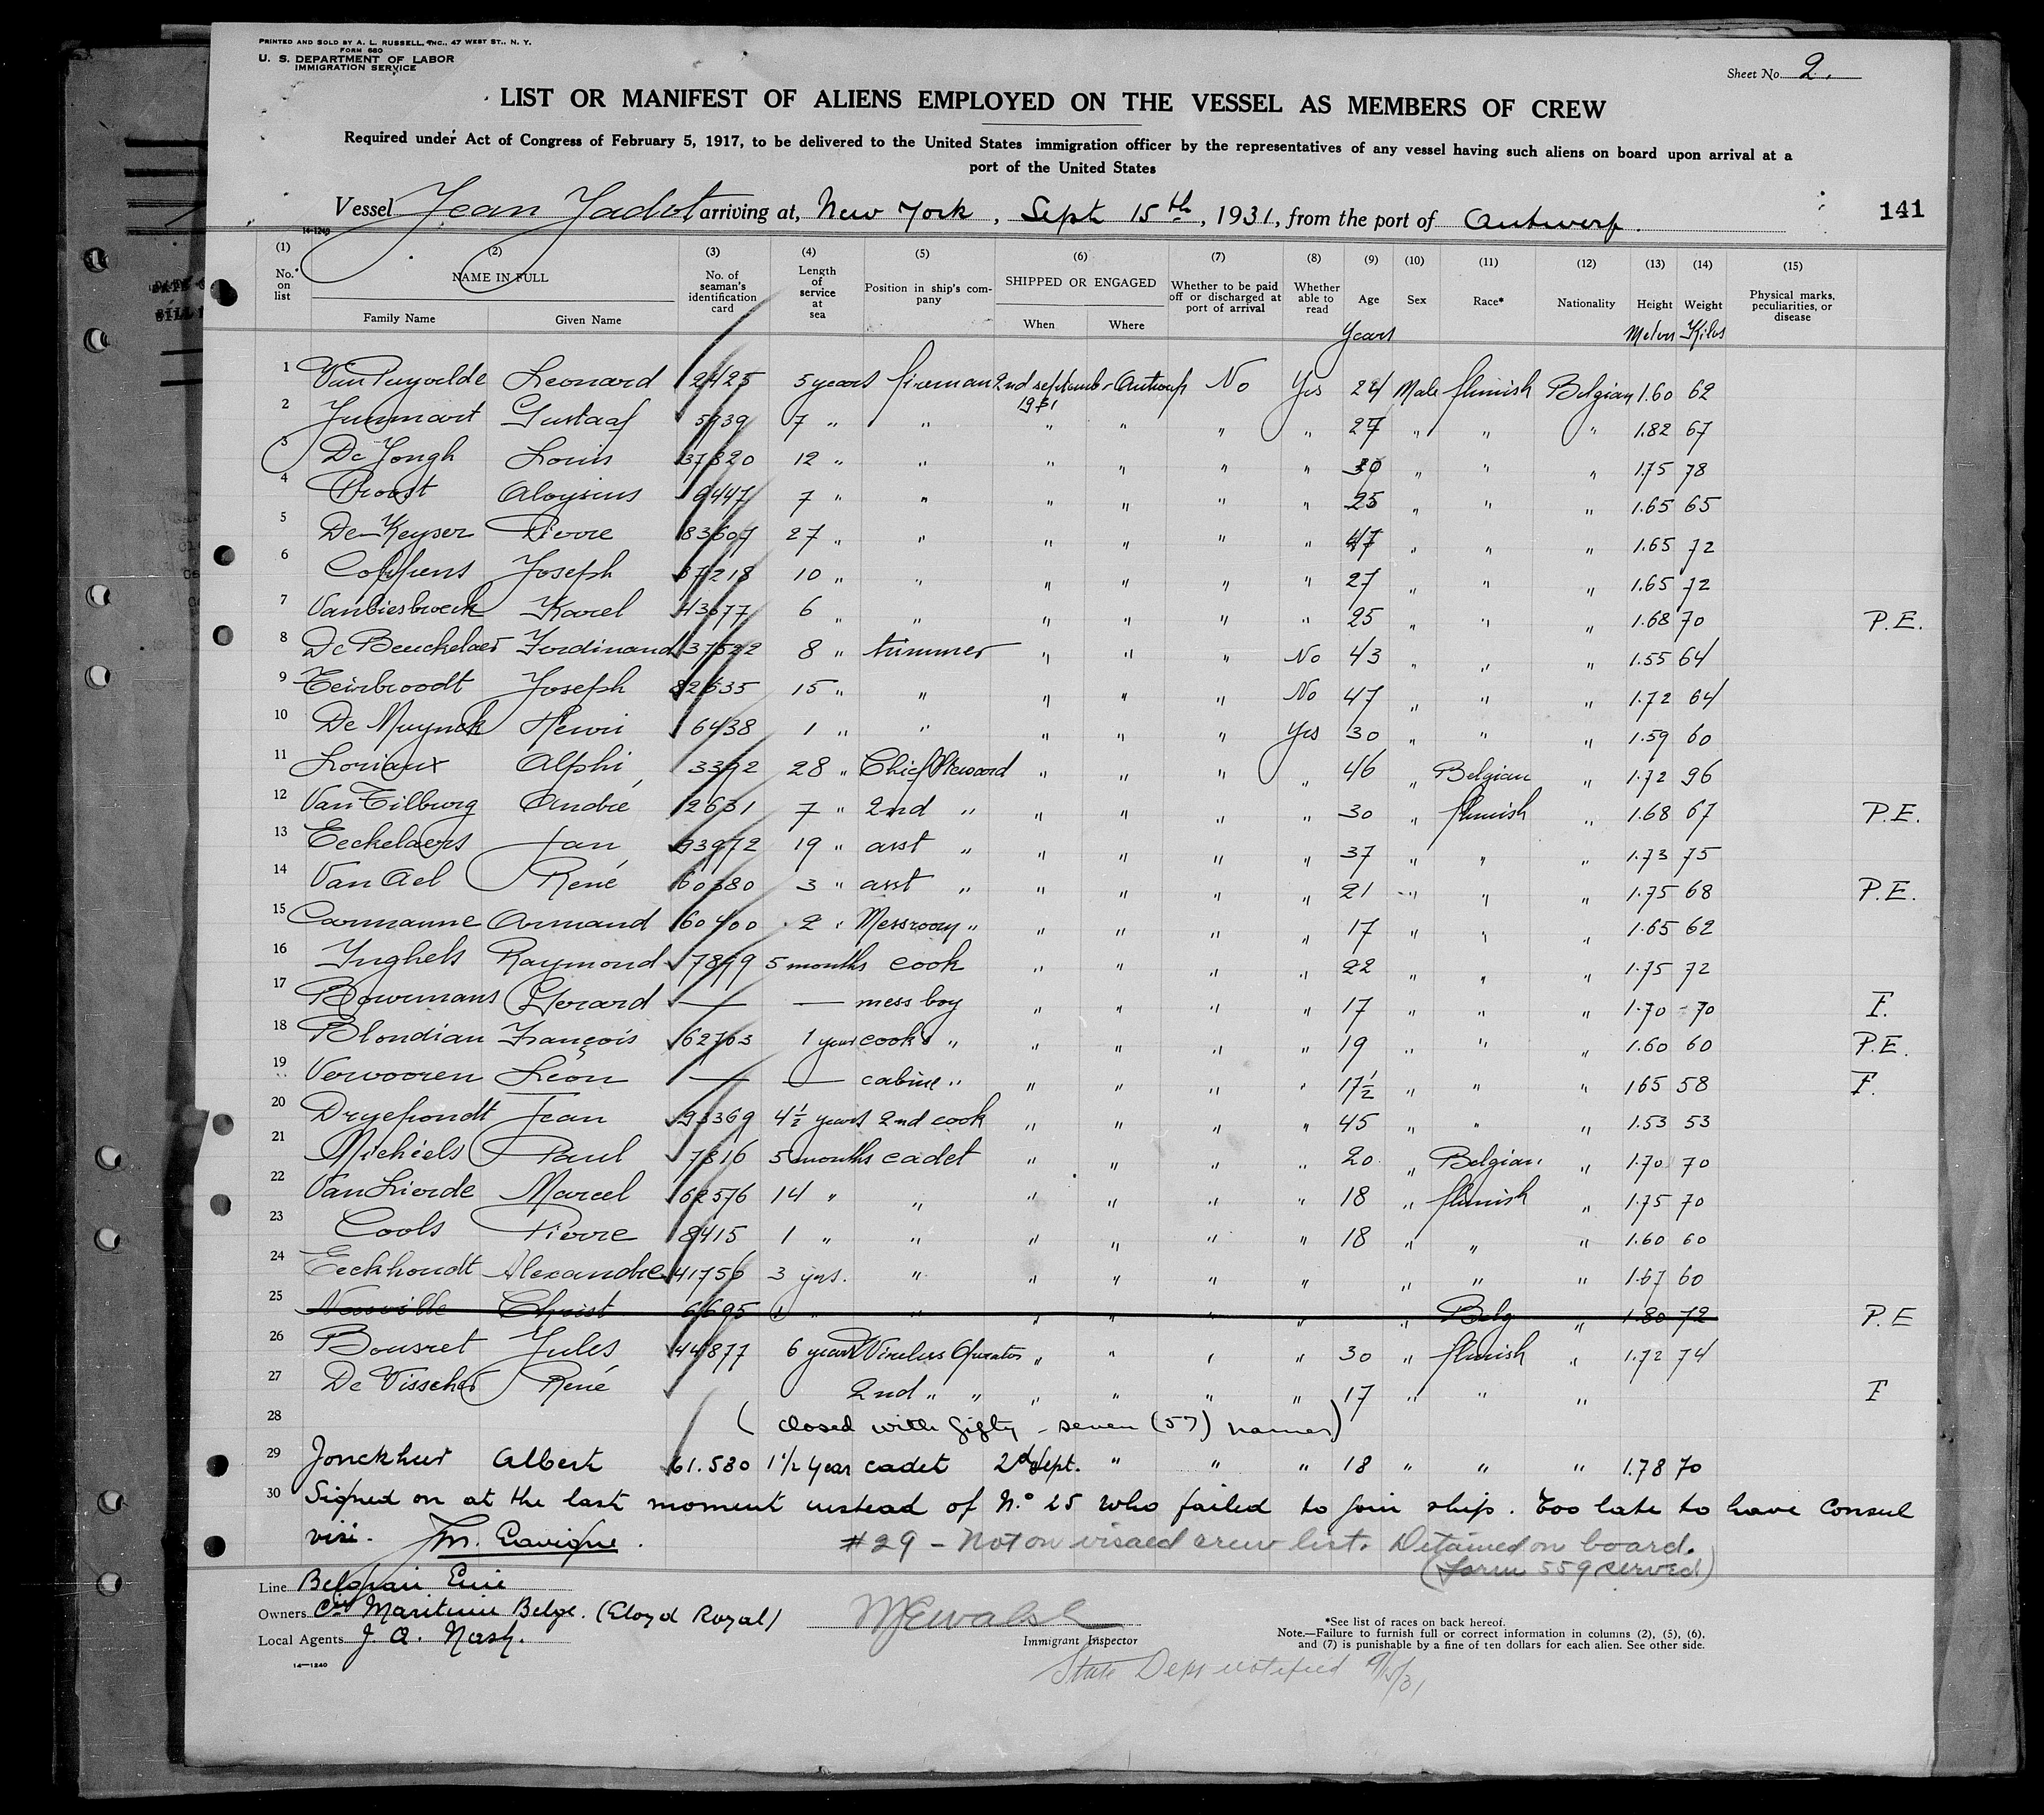 PRINTED AND SOLD BY A. L. RUSSELL, INC., 47 WEST ST., N. Y.
FORM 680
U. S. DEPARTMENT OF LABOR
IMMIGRATION SERVICE
Sheet No. 2.
LIST OR MANIFEST OF ALIENS EMPLOYED ON THE VESSEL AS MEMBERS OF CREW
Required under Act of Congress of February 5, 1917, to be delivered to the United States immigration officer by the representatives of any vessel having such aliens on board upon arrival at a
port of the United States
Vessel Jean Jadot arriving at, New York, Sept 15th, 1931, from the port of Antwerp.
141
14-1240
(1) (2) (3) (4) (5) (6) (7) (8) (9) (10) (11) (12) (13) (14) (15)
No. on list NAME IN FULL Family Name Given Name No. of seaman's identification card Length of service at sea Position in ship's company SHIPPED OR ENGAGED When Where Whether to be paid off or discharged at port of arrival Whether able to read Age Sex Race* Nationality Height Weight Physical marks, peculiarities, or disease
Years Meters Kilos
1 Van Puyvelde Leonard 2425 5 years fireman 2nd september 1931 Antwerp No Yes 24 Male flemish Belgian 1.60 62
2 Jummart Gustaaf 5939 7 " " " " " " 27 " " " 1.82 67
3 De Jongh Louis 37820 12 " " " " " " 30 " " " 1.75 78
4 Proost Aloysius 9447 7 " " " " " " 25 " " " 1.65 65
5 De Keyser Pierre 83607 27 " " " " " " 47 " " " 1.65 72
6 Coppens Joseph 37218 10 " " " " " " 27 " " " 1.65 72
7 Vanbiesbroeck Karel 43677 6 " " " " " " 25 " " " 1.68 70 P.E.
8 De Beuckelaer Ferdinand 37522 8 " trimmer " " " No 43 " " " 1.55 64
9 Teirbroodt Joseph 82635 15 " " " " " No 47 " " " 1.72 64
10 De Muynck Henri 6438 1 " " " " " Yes 30 " " " 1.59 60
11 Loriaux Alphi 3392 28 " Chief Steward " " " " 46 " Belgian " 1.72 96
12 Van Tilburg André 2631 7 " 2nd " " " " " 30 " flemish " 1.68 67 P.E.
13 Eeckelaers Jan 93972 19 " asst " " " " " 37 " " " 1.73 75
14 Van Ael René 60380 3 " asst " " " " " 21 " " " 1.75 68 P.E.
15 Carmanne Armand 60400 2 " Messroom " " " " " 17 " " " 1.65 62
16 Inghels Raymond 7899 5 months cook " " " " 22 " " " 1.75 72
17 Bowemans Gerard — — mess boy " " " " 17 " " " 1.70 70 F.
18 Blondian François 62703 1 year cooks " " " " " 19 " " " 1.60 60 P.E.
19 Vervooren Léon — — cabine " " " " " 17½ " " " 165 58 F.
20 Dryepondt Jean 93369 4½ years 2nd cook " " " " 45 " " " 1.53 53
21 Michiels Paul 7816 5 months cadet " " " " 20 " Belgian " 1.70 70
22 Van Lierde Marcel 62576 14 " " " " " " 18 " flemish " 1.75 70
23 Cools Pierre 8415 1 " " " " " " 18 " " " 1.60 60
24 Eeckhoudt Alexandre 41756 3 yrs. " " " " " " " " 1.67 60
25 Nasville Christ 6695 " " " " " " " Belg " 1.80 72 P.E
26 Bousret Jules 44877 6 years Wireless Operator " " " " 30 " flemish " 1.72 74
27 De Visscher René 2nd " " " " " " 17 " " " F
28 (closed with fifty-seven (57) names)
29 Jonckheer Albert 61.530 1 1/2 year cadet 2d Sept. " " " 18 " " " 1.78 70
30 Signed on at the last moment instead of No 25 who failed to join ship. Too late to have Consul
visé.
#29 - Not on visaed crew list. Detained on board.
(Form 559 served)
Line Belgian Line
Owners Cie Maritime Belge. (Lloyd Royal)
Local Agents J. A. Nash.
14-1240
Immigrant Inspector
*See list of races on back hereof.
Note.—Failure to furnish full or correct information in columns (2), (5), (6),
and (7) is punishable by a fine of ten dollars for each alien. See other side.
State Dept notified 9/15/31